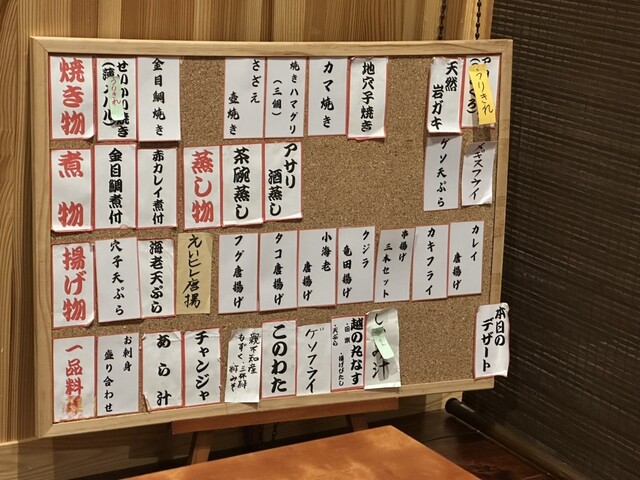 焼き物
うりきれ
金目鯛焼き
さざえ
壺焼き
焼きハマグリ
(三個)
カマ焼き
地穴子焼き
天然
岩ガキ
うりきれ
煮物
金目鯛煮付
赤カレイ煮付
蒸し物
茶碗蒸し
アサリ
酒蒸し
ゲソ天ぷら
キスフライ
揚げ物
穴子天ぷら
海老天ぷら
えいヒレ唐揚
フグ唐揚げ
タコ唐揚げ
小海老
唐揚げ
クジラ
竜田揚げ
串揚げ
三本セット
カキフライ
カレイ
唐揚げ
一品料理
お刺身
盛り合わせ
あら汁
チャンジャ
親不知産
もずく三杯酢
このわた
ゲソフライ
越の丸なす
・田楽
・天ぷら
・揚げびたし
しじみ汁
本日の
デザート